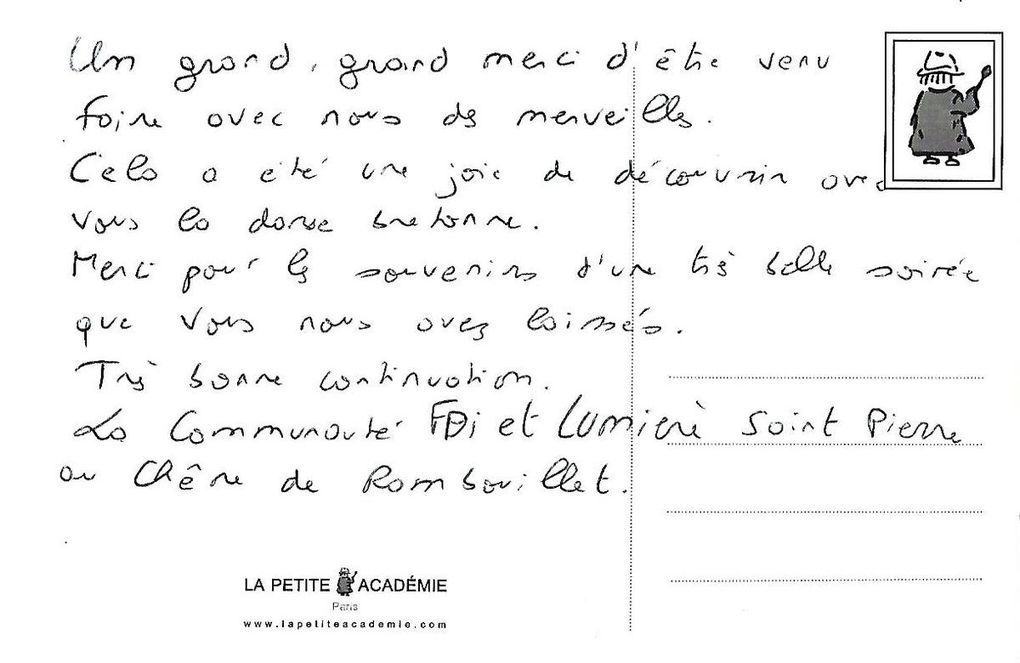 Un grand, grand merci d'être venu
faire avec nous des merveilles.
Cela a été une joie de découvrir avec
vous la danse bretonne.
Merci pour les souvenirs d'une très belle soirée
que vous nous avez laissés.
Très bonne continuation.
La Communauté Foi et Lumière Saint Pierre
au Chêne de Rambouillet.
LA PETITE ACADÉMIE
Paris
www.lapetiteacademie.com